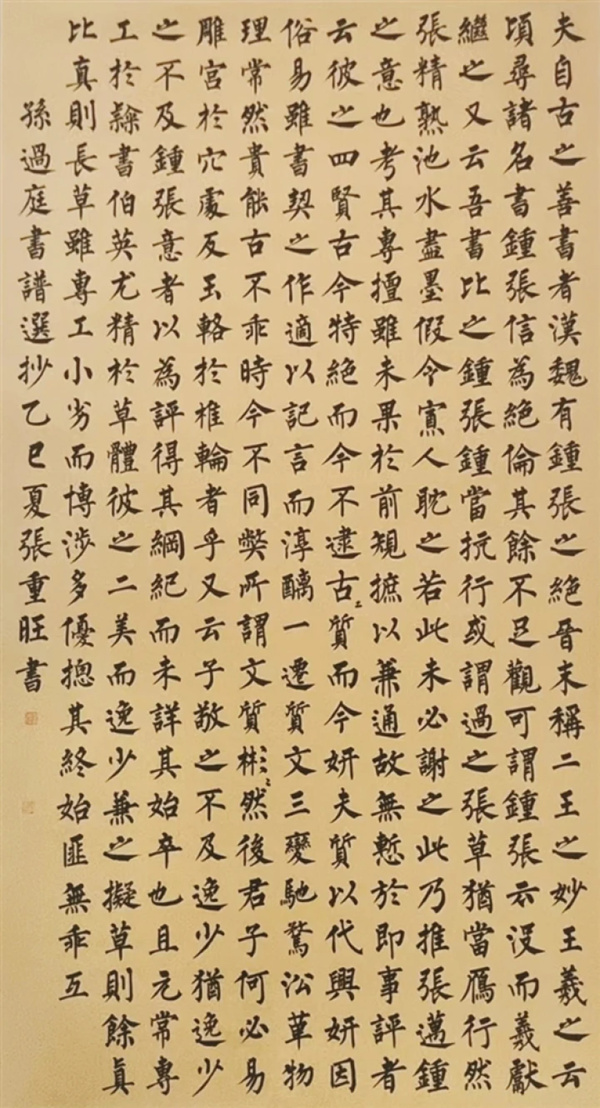 夫自古之善書者漢魏有鍾張之絕晉末稱二王之妙王羲之云
頃尋諸名書鍾張信為絕倫其餘不足觀可謂鍾張云沒而羲獻
繼之又云吾書比之鍾張鍾當抗行或謂過之張草猶當鴈行然
張精熟池水盡墨假令寡人耽之若此未必謝之此乃推張邁鍾
之意也考其專擅雖未果於前規摭以兼通故無慙於即事評者
云彼之四賢古今特絕而今不逮古〻質而今妍夫質以代興妍因
俗易雖書契之作適以記言而淳醨一遷質文三變馳騖沿革物
理常然貴能古不乖時今不同弊所謂文質彬〻然後君子何必易
雕宮於穴處反玉輅於椎輪者乎又云子敬之不及逸少猶逸少
之不及鍾張意者以為評得其綱紀而未詳其始卒也且元常專
工於隸書伯英尤精於草體彼之二美而逸少兼之擬草則餘真
比真則長草雖專工小劣而博涉多優摠其終始匪無乖互
孫過庭書譜選抄乙巳夏張重旺書